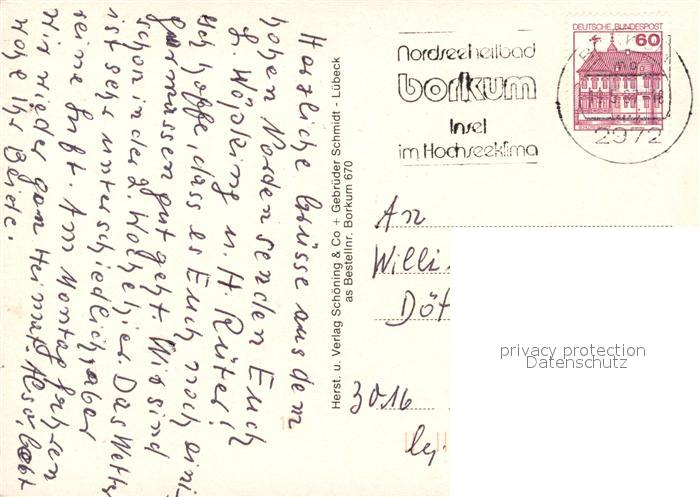 Herzliche Grüsse aus dem
hohen Norden senden Euch
G. Wöpking u. H. Rüter!
Ich hoffe, dass es Euch noch eini-
germassen gut geht. Wir sind
schon in der 2. Woche hier. Das Wetter
ist sehr unterschiedlich, aber
reine Luft. Am Montag fahren
wir wieder gen Heimat. Also, lebt
wohl Ihr Beide.
Herst. u. Verlag Schöning & Co + Gebrüder Schmidt - Lübeck
as Bestellnr. Borkum 670
Nordseeheilbad
borkum
Insel
im Hochseeklima
DEUTSCHE BUNDESPOST
60
2972
An
Willi
Döt
3016
privacy protection
Datenschutz